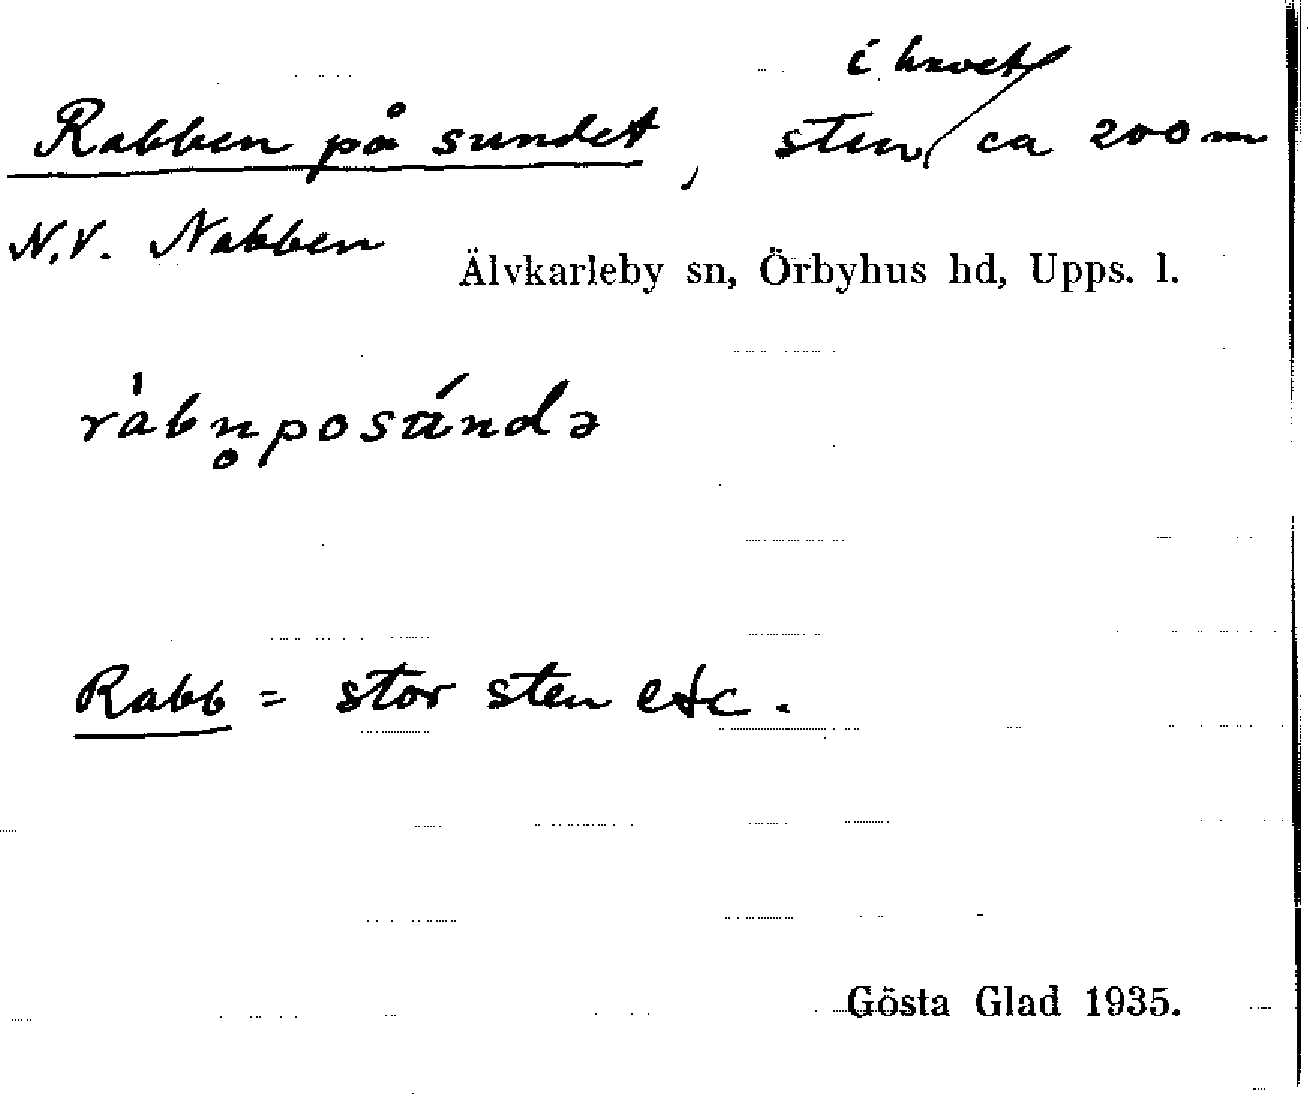 i havet
Rabben på sundet, sten ca 200 m
N.V. Nabben
Älvkarleby sn, Örbyhus hd, Upps. l.
ràbn̥posúndə
Rabb = stor sten etc.
Gösta Glad 1935.